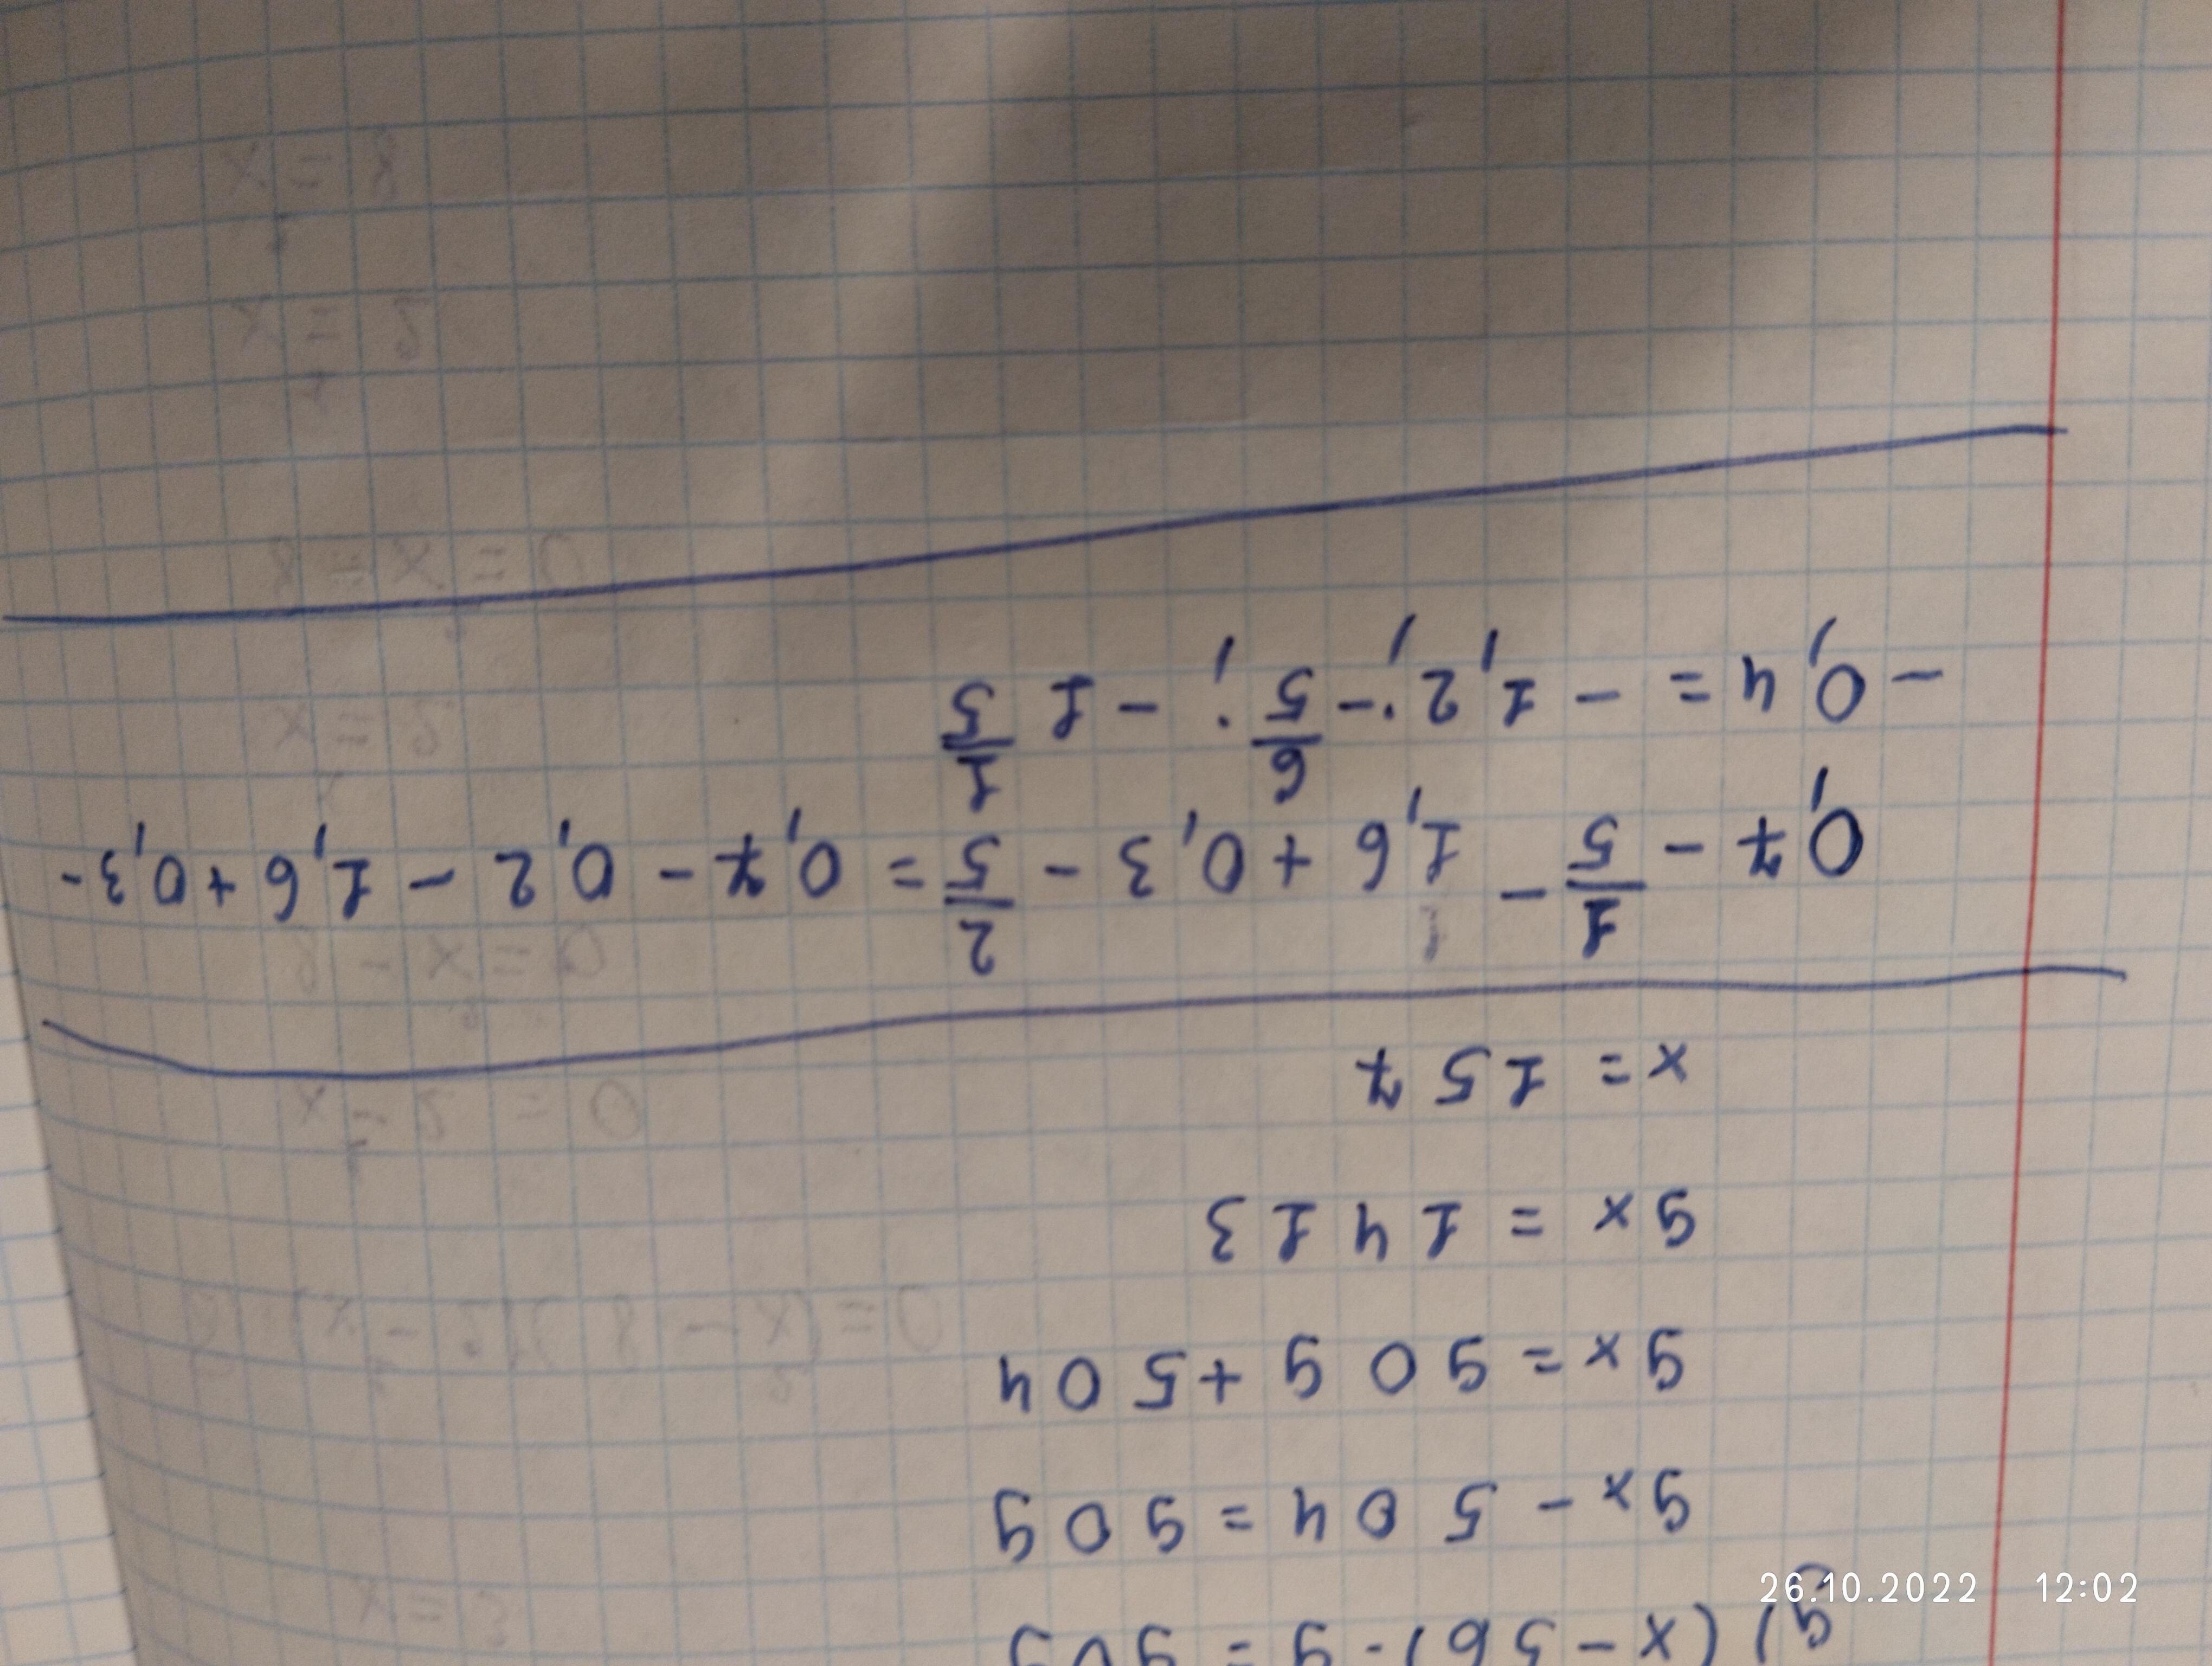 g) (x - 56) · 9 = 909
9x - 504 = 909
9x = 909 + 504
9x = 1413
x = 157
0,7 - 1/5 - 1,6 + 0,3 - 2/5 = 0,7 - 0,2 - 1,6 + 0,3 -
- 0,4 = - 1,2 ; - 6/5 ; - 1 1/5
26.10.2022 12:02